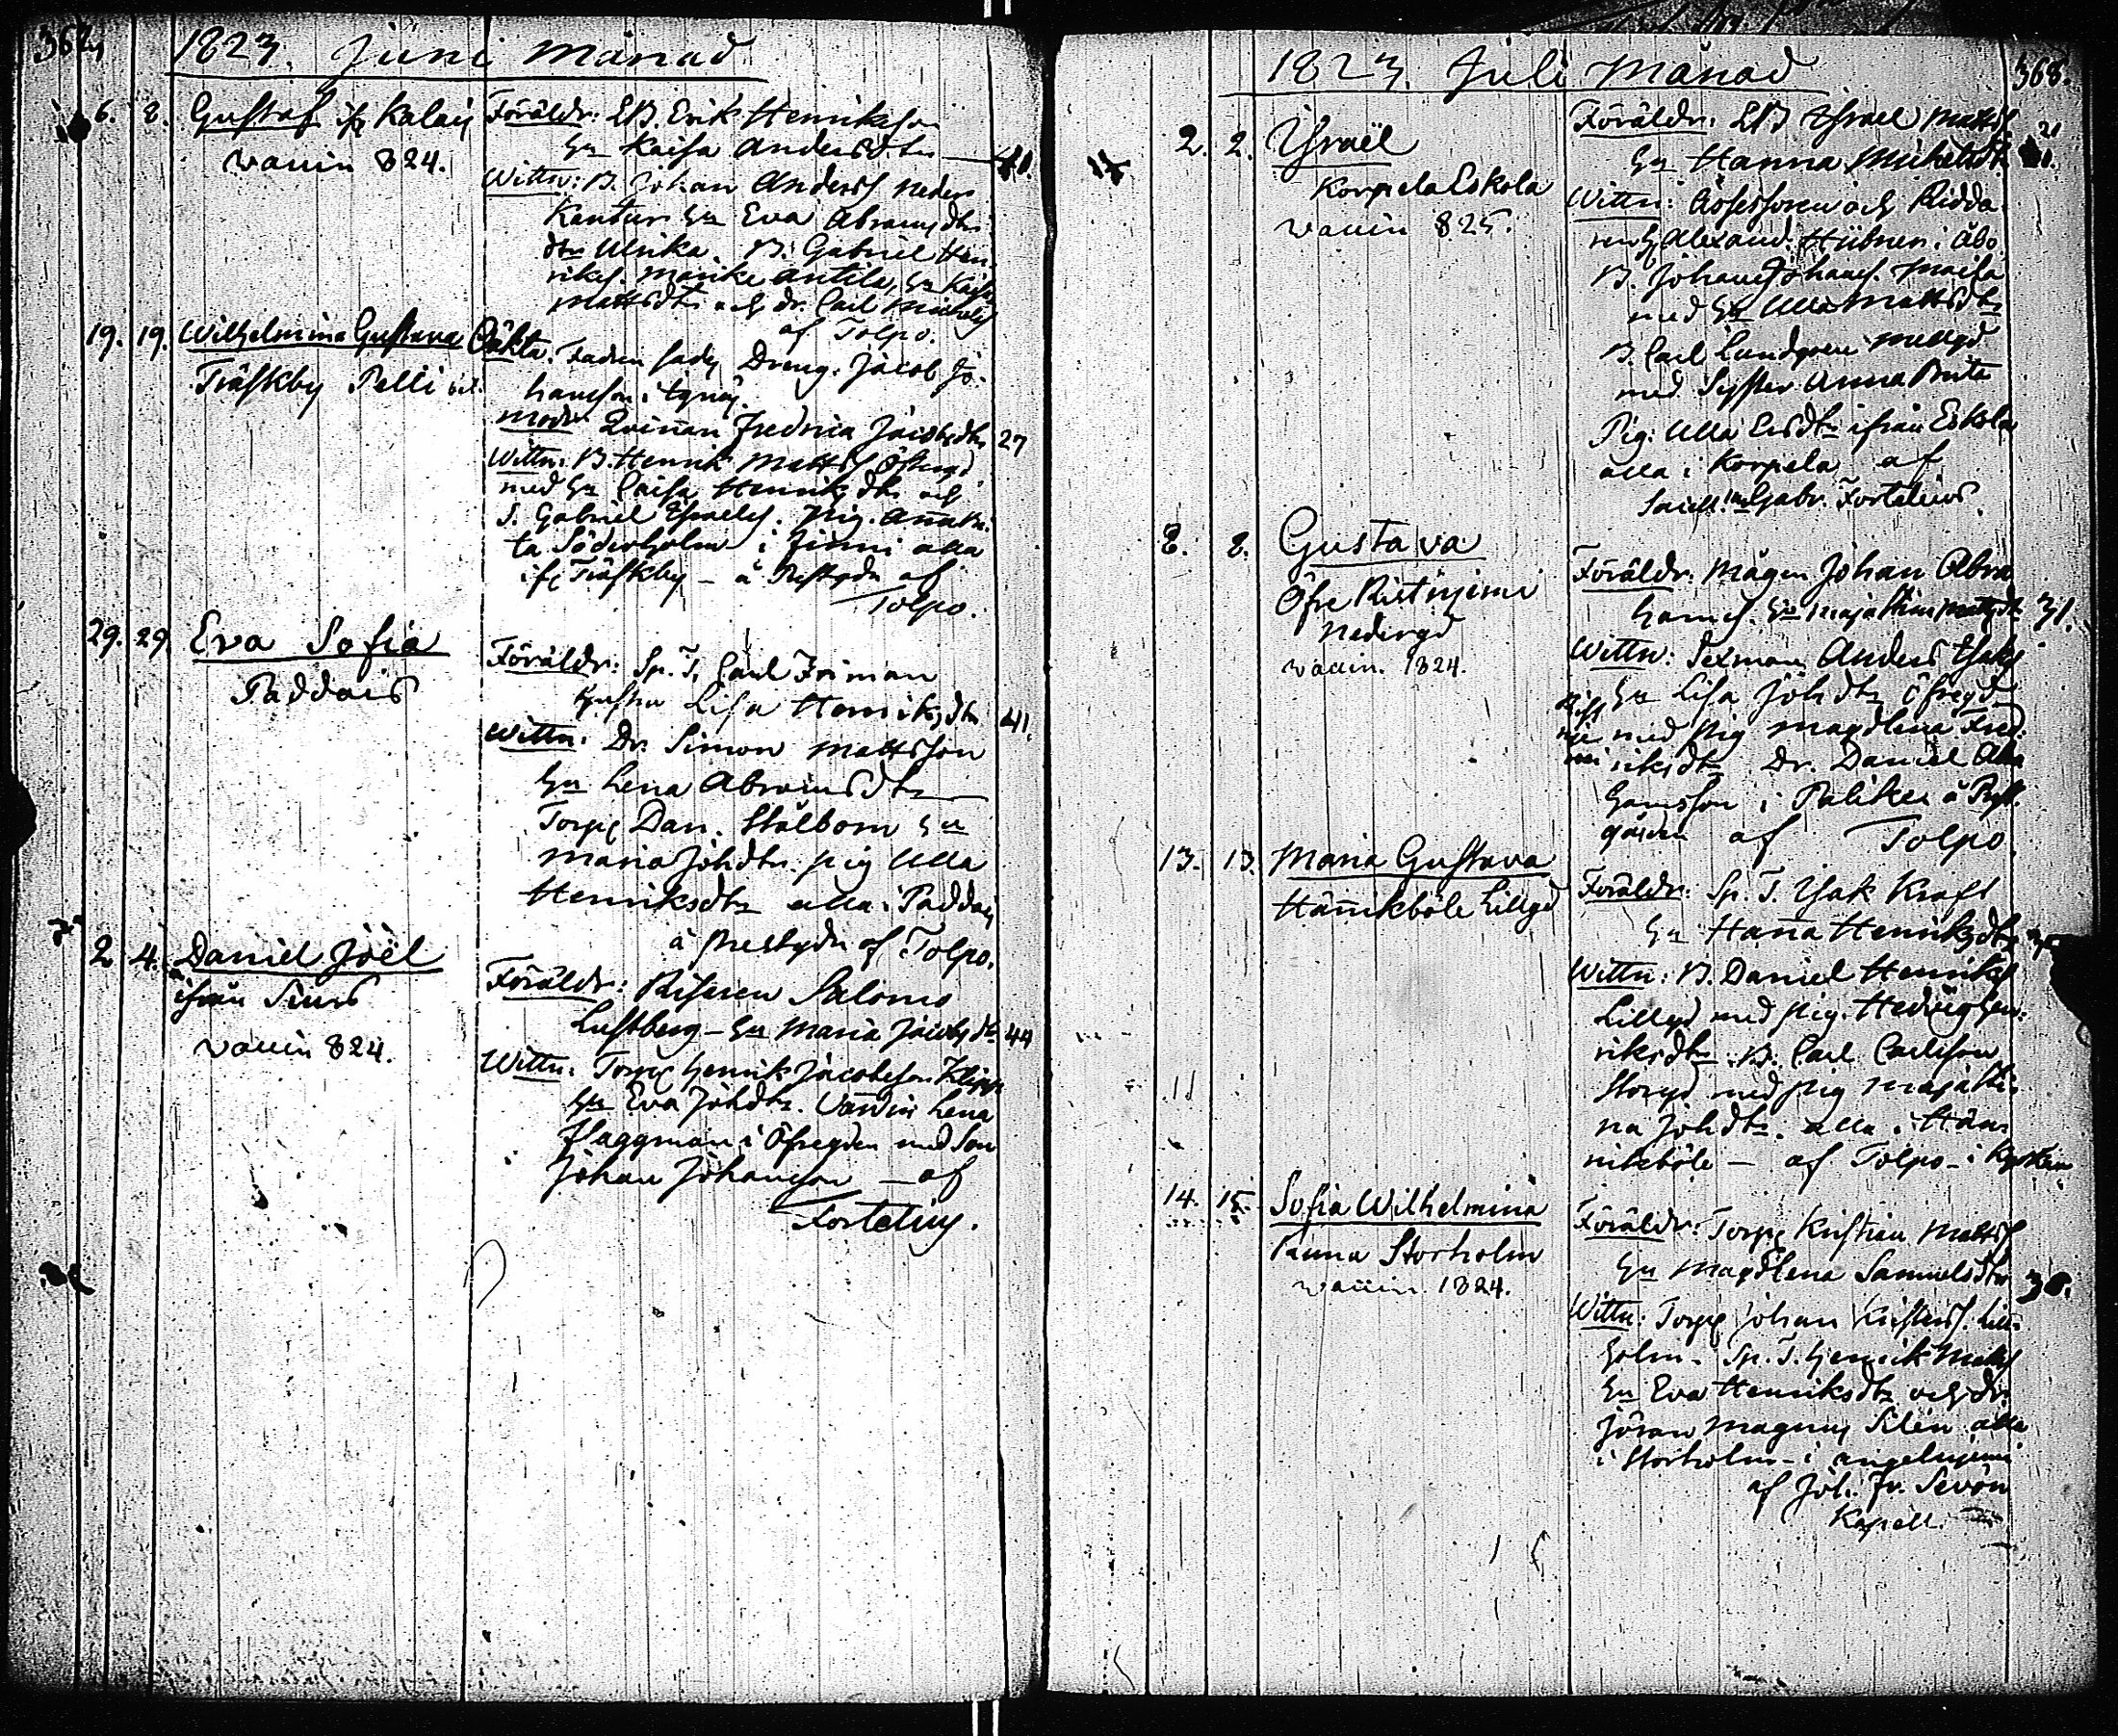 1823. Juni månad
6. 8. Gustaf ifr Kalais
vaccin 824.
Föräldr: LB. Erik Henriksson
Hu Kaisa Andersdtr
Wittn: B. Johan Anderss neder
Kantur Hu Eva Abramsdtr
dtr Ulrika. B. Gabriel Hen-
rikss. Marike Antila, Hu Kaisa
Mattsdtr och dr. Carl Michelss
af Tolpo.
19. 19. Wilhelmina Gustava
Träskby Pelli
Oäkta. Fadren sades Dreng. Jacob Jo-
hansson i
Modr Qvinnan Fredrica Jacobsdtr 27
Wittn: B. Henrik Mattss
med Hu Caisa Henriksdtr och
S. Gabriel Israelss. Pig.
ta Söderholm i Finni alla
ifr Träskby – å Prestgdn af
Tolpo.
29. 29. Eva Sofia
Paddais
Föräldr: Sp. T. Carl Friman
Hustru Lisa Henriksdtr 41.
Wittn: Dr. Simon Mattsson
Hu Lena Abramsdtr
Torpr Dan. Stålbom Hu
Maria Johdtr. pig Ulla
Henriksdtr alla i Paddais
å prestgdn af Tolpo.
2 4. Daniel Joël
ifrån
vaccin 824.
Föräldr: Salomo
Lustberg – Hu Maria Jacobsdtr 44
Wittn: Torpr Henrik Jacobsson
Hu Eva Johdtr. Lena
Flaggman i Öfregden med Son
Johan Johansson – af
Fortelius.
1823. Juli Månad 368.
2. 2. Israël
Korpela Eskola
vaccin 825.
Föräldr: LB Israel Mattss
Hu Hanna Michelsdtr
Wittn: Assessoren och Ridda-
ren Alexand. Hübner i Åbo
B. Johan Johanss. Maila
med Hu Ulla Mattsdtr
B. Carl Lundgren Mellgd
med Syster Anna Brita
Pig: Ulla Ersdtr ifrån Eskola
alla i Korpela af
Gabr. Fortelius.
8. 8. Gustava
Öfre Ristinjemi
Nedergd
vaccin. 1824.
Föräldr: Mågen Johan Abra
hamss. Hu Maja Stina Mattsdtr 31.
Wittn: Sexman Anders Isaks
Hu Lisa Johdtr Öfregd
med pig Magdlena Fred-
riksdtr Dr. Daniel Abra
hamsson i Palikes å Prest-
gården af Tolpo
13. 13. Maria Gustava
Hännikböle Lillgd
Föräldr: Sp. T. Isak Kraft
Hu Hanna Henriksdtr
Wittn: B. Daniel Henrikss
Lillgd med pig. Hedvig Hen-
riksdtr. B. Carl Carlsson
Storgd med pig Maja Sti-
na Johdtr. alla i Hän-
nikeböle – af Tolpo – i
14. 15. Sofia Wilhelmina
Runa Storholm
vaccin 1824.
Föräldr: Torpr Kristian Mattss
Hu Magdlena Samuelsdtr 38.
Wittn: Torpr Johan Kristerss. Lill-
holm. Sp. T. Henrik Matss
Hu Eva Henriksdtr och dr
Jöran Magnus Silén alla
i Storholm – i Angelniemi
af Joh. Fr. Sevón
Kapell.